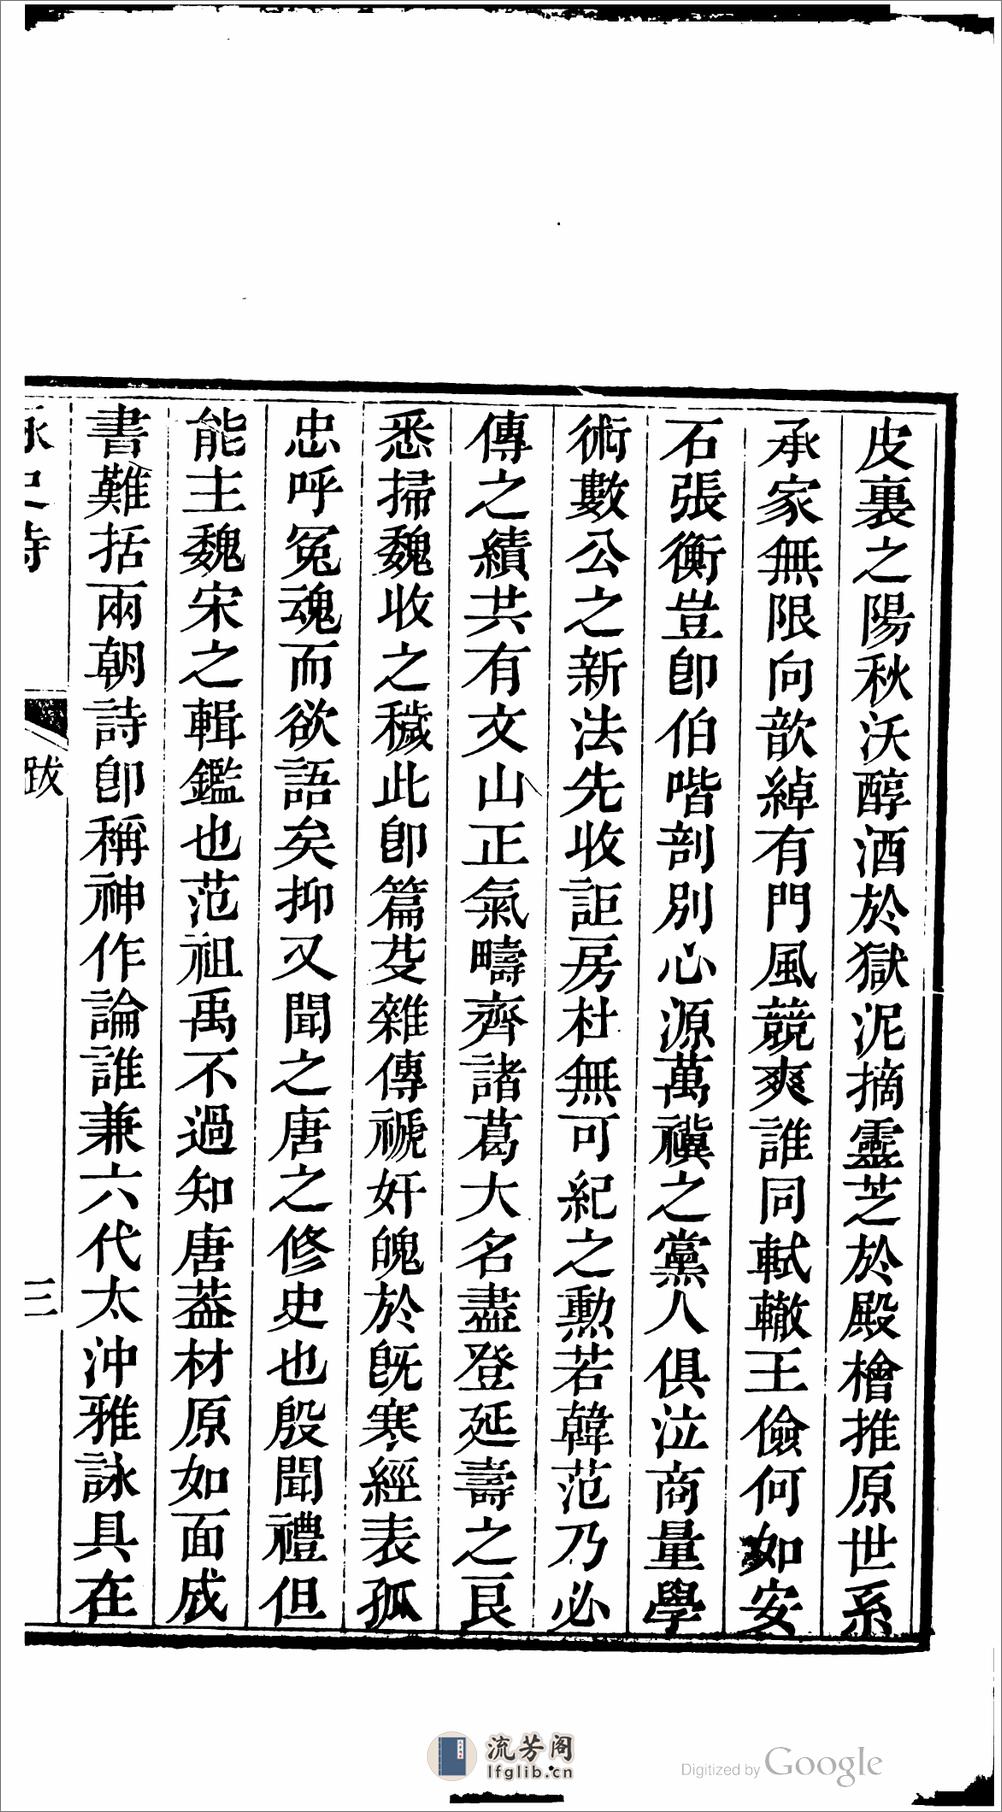 皮裏之陽秋沃醇酒於獄泥摘靈芝於殿檜推原世系
承家無限向歆綽有門風競爽誰同軾轍王儉何如安
石張衡豈卽伯喈剖別心源萬禩之黨人俱泣商量學
術數公之新法先收詎房杜無可紀之勲若韓范乃必
傳之績共有文山正氣疇齊諸葛大名盡登延壽之艮
悉掃魏收之穢此卽篇芟雜傳褫奸魄於旣寒經表孤
忠呼冤魂而欲語矣抑又聞之唐之修史也殷聞禮但
能主魏宋之輯鑑也范祖禹不過知唐葢材原如面成
書難括兩朝詩卽稱神作論誰兼六代太沖雅詠具在
史詩
跋
三
流芳阁
lfglib.cn
Digitized by Google